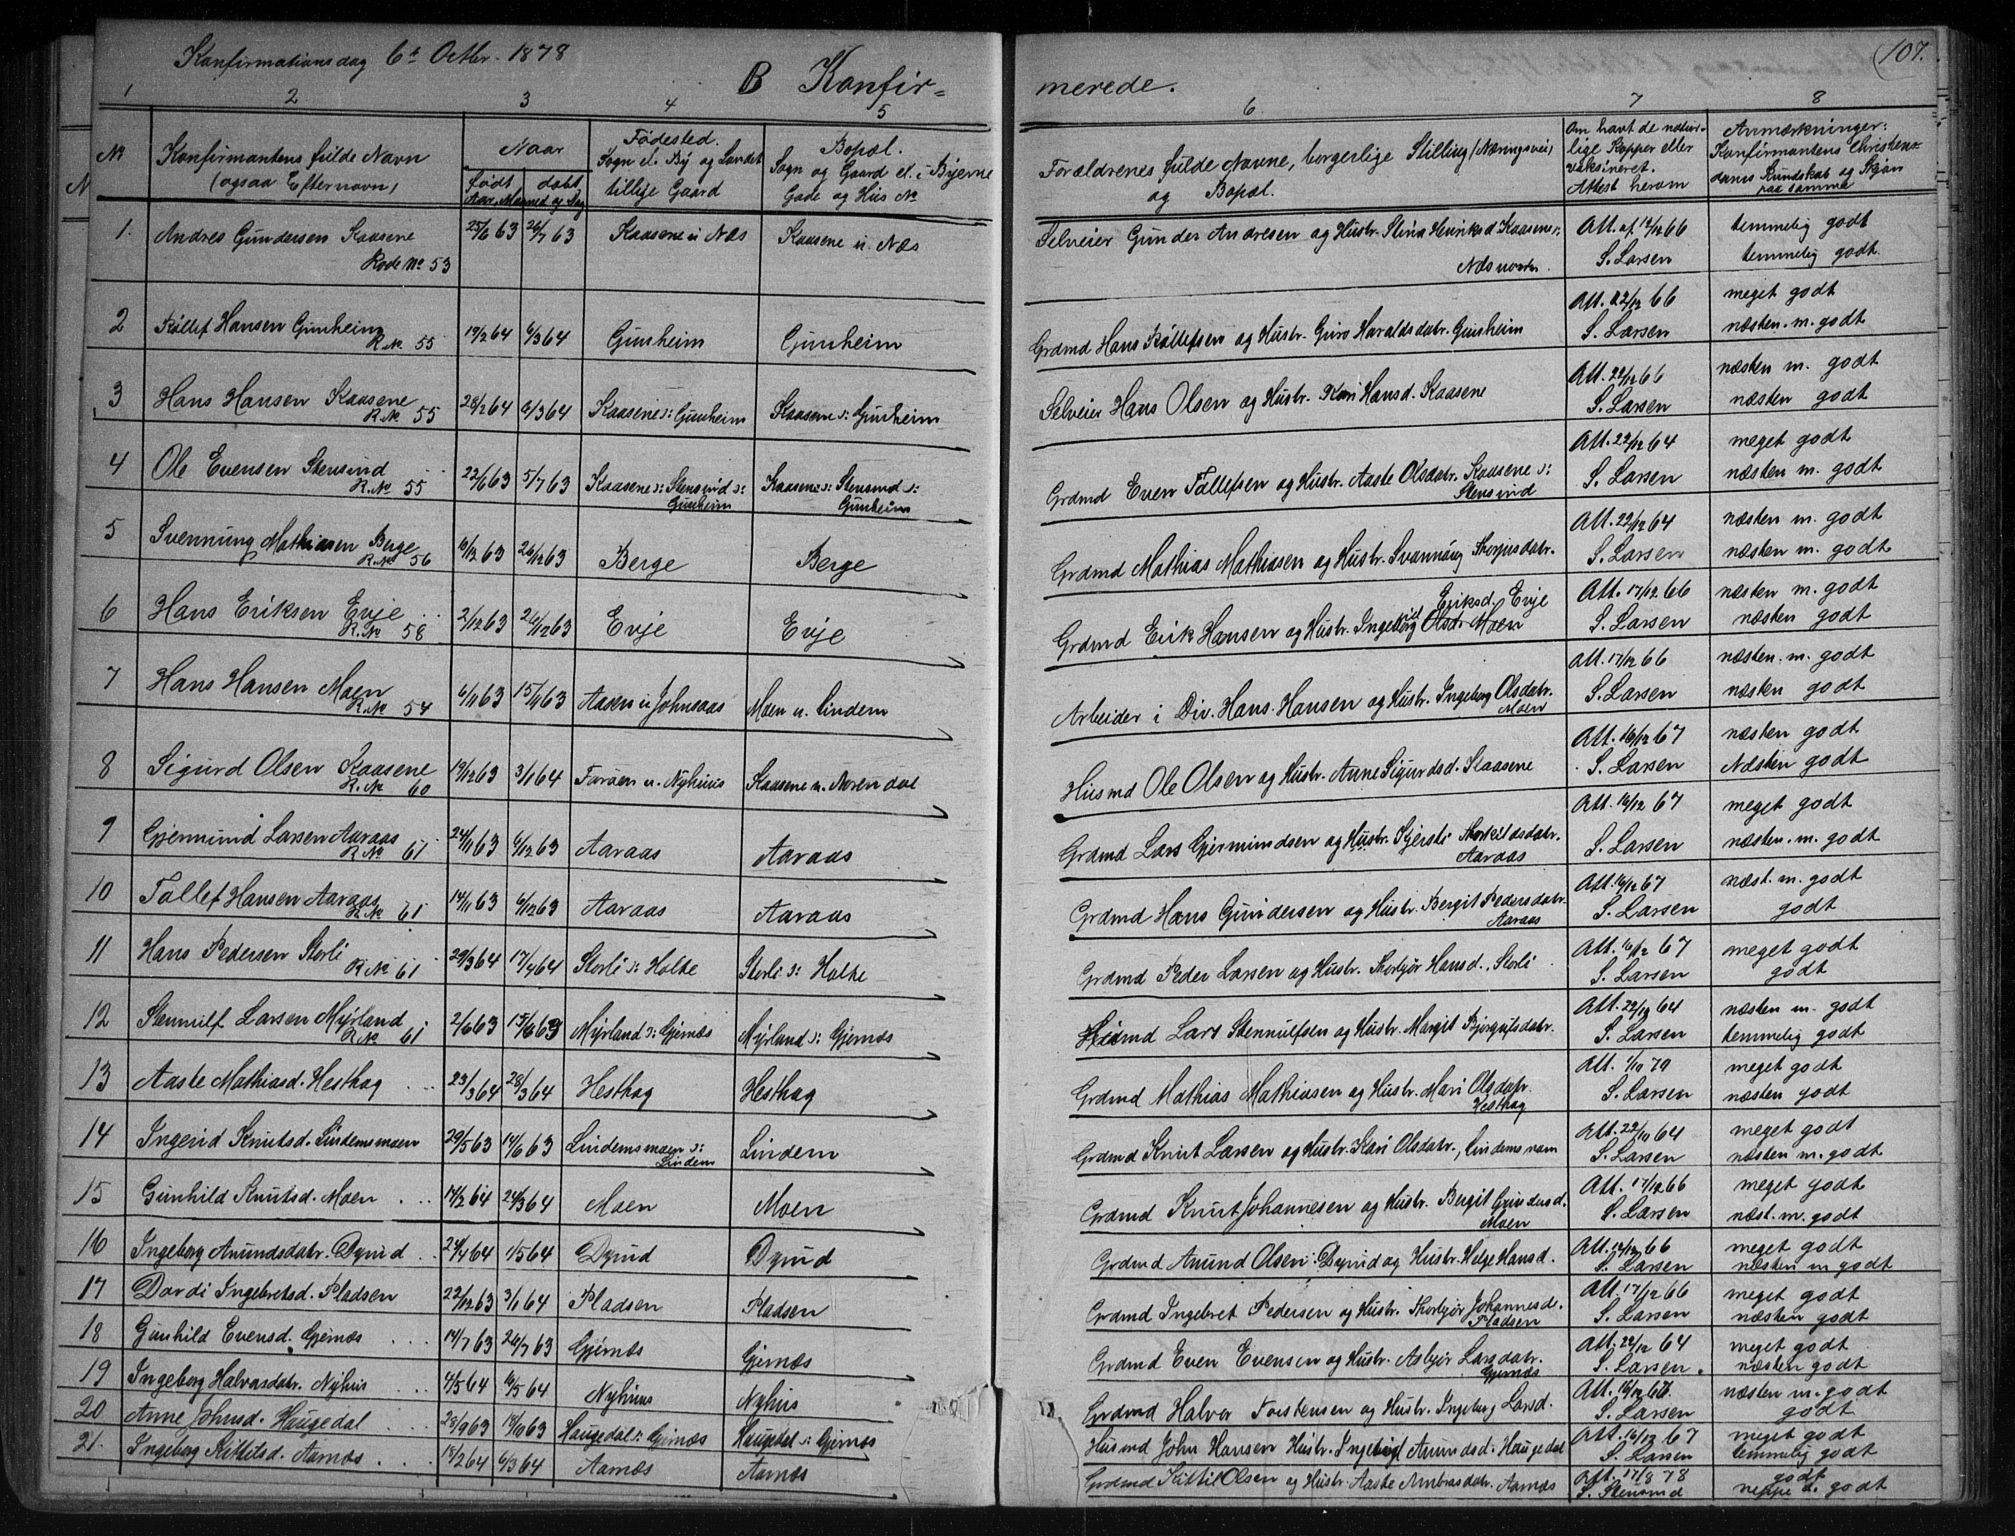 Konfirmationsdag 6te Octbr. 1878
B Konfir=
merede.
107.
1 2 3 4 5 6 7 8
No
Konfirmantens fulde Navn
(ogsaa Efternavn)
Naar
født døbt
Aar, Maaned og Dag
Fødested.
Sogn el. By og Landet
tillige Gaard
Bopæl.
Sogn og Gaard el. i Byerne
Gade og Hus No
Forældrenes fulde Navne, borgerlige Stilling (Næringsvei)
og Bopæl.
Om havt de natur-
lige Kopper eller
vaksineret.
Attest herom
Anmærkninger:
Konfirmantens Christen-
doms Kundskab og Skjøn
paa samme
1. Andres Gundersen Kaasene 25/6 63 26/7 63 Kaasene u. Næs Kaasene u. Næs Selveier Gunder Andresen og Hustr. Stina Henriksd. Kaasene u. Att. af 14/12 66 temmelig godt
Rode No 53 Næs nordre S. Larsen temmelig godt
2 Køllef Hansen Gunheim 19/2 64 6/3 64 Gunheim Gunheim Grdmd Hans Køllefsen og Hustr. Guro Haraldsdatr. Gunheim Att. 22/12 66 meget godt
R. No 55 S. Larsen næsten. m. godt
3 Hans Hansen Kaasene 28/2 64 6/3 64 Kaasene s: Gunheim Kaasene s: Gunheim Selveier Hans Olsen og Hustr. Kari Hansd. Kaasene Att. 22/12 66 næsten m. godt
R. No 55 S. Larsen næsten godt
4 Ole Evensen Stensrud 22/6 63 5/7 63 Kaasene s: Stensrud s: Kaasene s: Stensrud s: Grdmd Even Tollefsen og Hustr. Aaste Olsdatr. Kaasene s: Att. 22/12 64 meget godt
R. No 55 Gunheim Gunheim Stensrud S. Larsen næsten m. godt
5 Svennung Mathiasen Berge 6/12 63 26/12 63 Berge Berge Grdmd Mathias Mathiasen og Hustr. Svannaug Thorjusdatr. Att. 22/12 64 næsten m. godt
R. No 56 S. Larsen næsten m. godt
6 Hans Eriksen Evje 2/12 63 26/12 63 Evje Evje Grdmd Erik Hansen og Hustr. Ingeborg Olsd. Moen Att. 17/12 66 næsten m. godt
R. No 58 Eriksd. Evje S. Larsen næsten godt
7 Hans Hansen Moen 6/11 63 15/11 63 Aasen u. Johnsaas Moen u. Lindem Arbeider i Div. Hans Hansen og Hustr. Ingeborg Olsdatr. Att. 17/12 66 næsten. m. godt
R. No 54 Moen S. Larsen næsten godt
8 Sigurd Olsen Kaasene 19/12 63 3/1 64 Faråen u. Nyhuus Kaasene u. Norendal Husmd Ole Olsen og Hustr. Anne Sigurdsd. Kaasene Att. 16/12 67 næsten godt
R. No 60 S. Larsen Næsten godt
9 Gjermund Larsen Aaraas 24/11 63 6/12 63 Aaraas Aaraas Grdmd Lars Gjermundsen og Hustr. Kjersti Thorkildsdatr. Att. 16/12 67 meget godt
R. No 61 Aaraas S. Larsen næsten. m. godt
10 Tollef Hansen Aaraas 14/11 63 6/12 63 Aaraas Aaraas Grdmd Hans Gundersen og Hustr. Bergit Pedersdatr. Att. 16/12 67 næst. m. godt
R. No 61 Aaraas S. Larsen godt
11 Hans Pedersen Storli 29/3 64 17/4 64 Storli s: Holte Storli s: Holte Grdmd Peder Larsen og Hustr. Thorbjør Hansd., Storli Att. 16/12 67 meget godt
R. No 61 S. Larsen godt
12 Stenulf Larsen Myrland 2/6 63 15/6 63 Myrland s: Gjernæs Myrland s: Gjernæs Husmd Lars Stennulfsen og Hustr. Margit Bjørgulfsdatr. Att. 22/12 64 næsten m. godt
R. No 61 S. Larsen temmelig godt
13 Aaste Mathiasd. Hesthag 23/3 64 28/3 64 Hesthag Hesthag Grdmd Mathias Mathiasen og Hustr. Mari Olsdatr. Att. 1/10 70 meget godt
Hesthag S. Larsen næsten godt
14 Ingerid Knutsd. Lindemsmoen 29/5 63 14/6 63 Lindemsmoen s: Lindem Grdmd Knut Larsen og Hustr. Kari Olsdatr., Lindemsmoen Att. 22/10 64 meget godt
Lindem S. Larsen næsten m. godt
15 Gunhild Knutsd. Moen 14/2 64 24/3 64 Moen Moen Grdmd Knut Johannesen og Hustr. Bergit Gundersd. Att. 17/12 66 meget godt
Moen S. Larsen næst. m. godt
16 Ingeborg Amundsdatr. Dyrud 24/4 64 1/5 64 Dyrud Dyrud Grdmd Amund Olsen: Dyrud og Hustr. Helge Hansd. Att. 14/12 66 meget godt
S. Larsen næsten m godt
17 Dordi Ingebretsd. Pladsen 22/12 63 3/1 64 Pladsen Pladsen Grdmd Ingebret Pedersen og Hustr. Thorbjør Johannesd. Att. 17/12 66 meget godt
Pladsen S. Larsen næsten godt
18 Gunhild Evensd. Gjernæs 14/7 63 26/7 63 Gjernæs Gjernæs Grdmd Even Evensen og Hustr. Asbjør Larsdatr. Att. 22/12 64 meget godt
Gjernæs S. Larsen næsten godt
19 Ingeborg Halvorsdatr. Nyhus 4/5 64 16/5 64 Nyhuus Nyhus Grdmd Halvor Torstensen og Hustr. Ingeborg Larsd. Att. 16/12 67. næsten m. godt
S. Larsen godt
20 Anne Johnsd. Haugedal 28/9 63 18/10 63 Haugedal s: Gjernæs Haugedal s: Gjernæs Husmd John Hansen Hustr. Ingebjørg Amundsd. Haugedal Att. 16/12 67 meget godt
S. Larsen temmelig godt
21. Ingeborg Kittilsd. Aarnæs 18/2 64 6/3 64 Aarnæs Aarnæs Grdmd Kittil Olsen og Hustr. Aaste Ambrosdatr. Aarnæs Att. 17/8 78 godt
S. Stensrud neppe d. godt